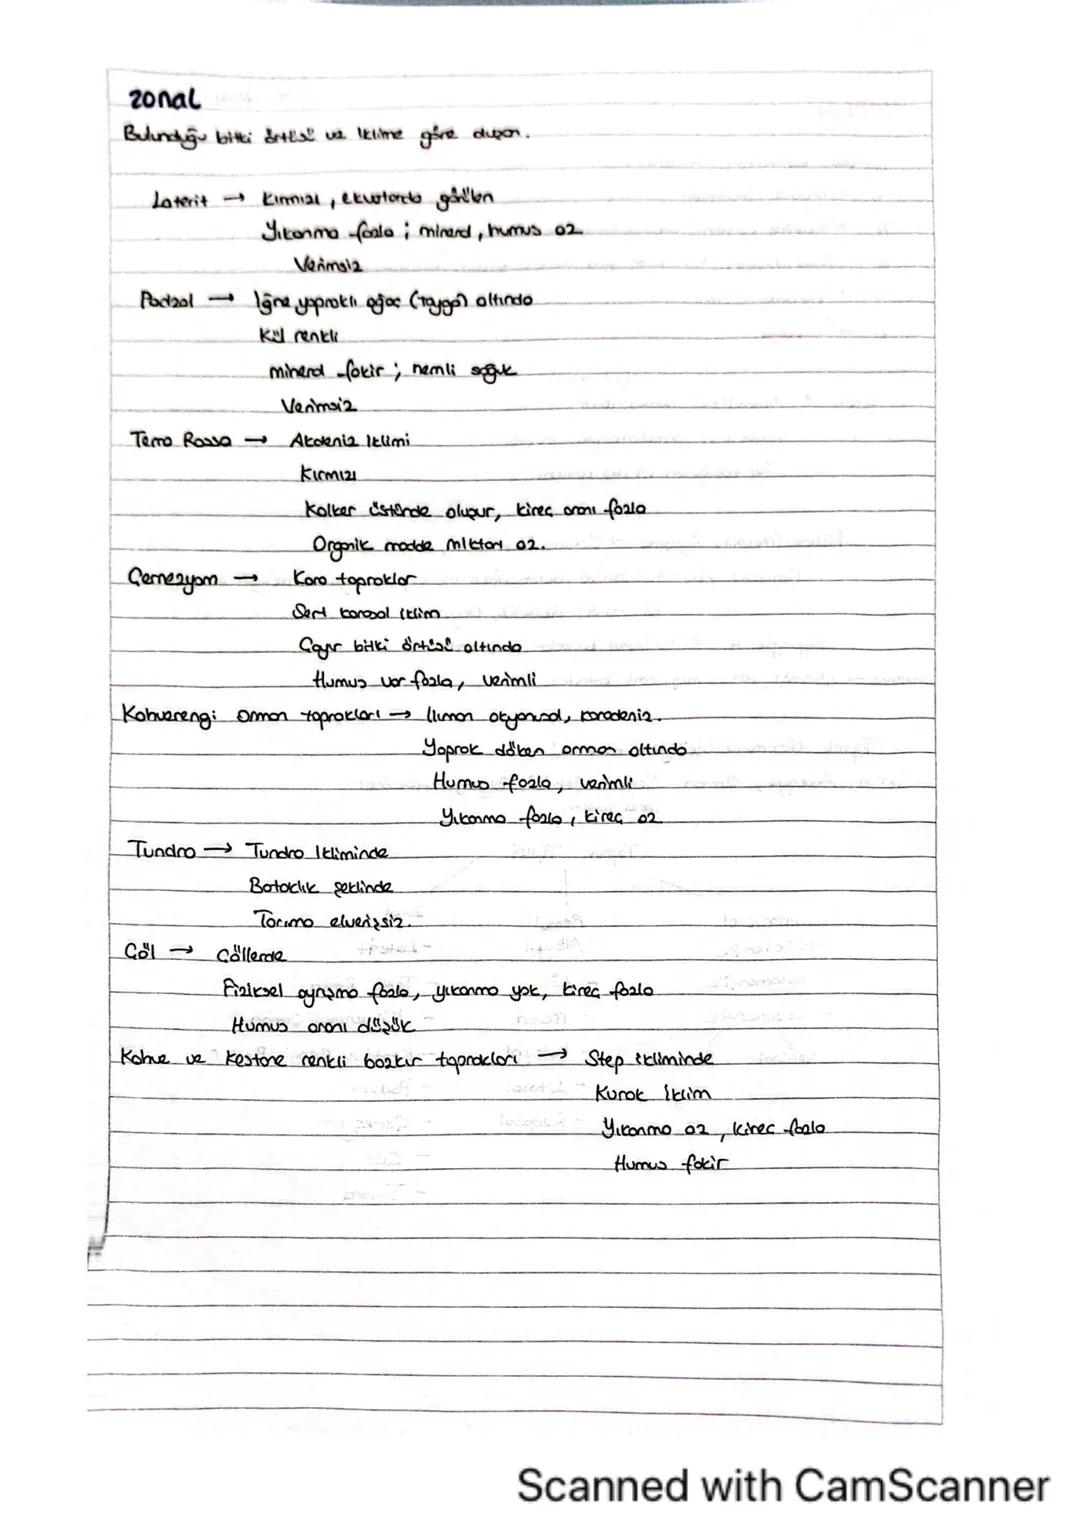 zonal
Bulunduğu bitki örtüsü ve iklime göre oluşan.
Laterit → Kırmızı, ekvatorda görülen
Yıkanma fazla ; mineral, humus az
Verimsiz
Podzol → İğne yapraklı ağaç (Tayga) altında
Kül renkli
mineral fakir ; nemli soğuk
Verimsiz
Terra Rossa → Akdeniz iklimi
Kırmızı
Kalker üstünde oluşur, kireç oranı fazla
Organik madde miktarı az.
Çernezyom → Kara topraklar
Sert karasal iklim
Çayır bitki örtüsü altında
Humus var fazla, verimli
Kahverengi orman toprakları → Ilıman okyanusal, karadeniz.
Yaprak döken orman altında
Humus fazla, verimli
Yıkanma fazla, kireç az
Tundra → Tundra ikliminde
Bataklık şeklinde
Tarıma elverişsiz.
Çöl → Çöllerde
Fiziksel ayrışma fazla, yıkanma yok, kireç fazla
Humus oranı düşük
Kahve ve kestane renkli bozkır toprakları → Step ikliminde
Kurak iklim
Yıkanma az, kireç fazla
Humus fakir
Scanned with CamScanner